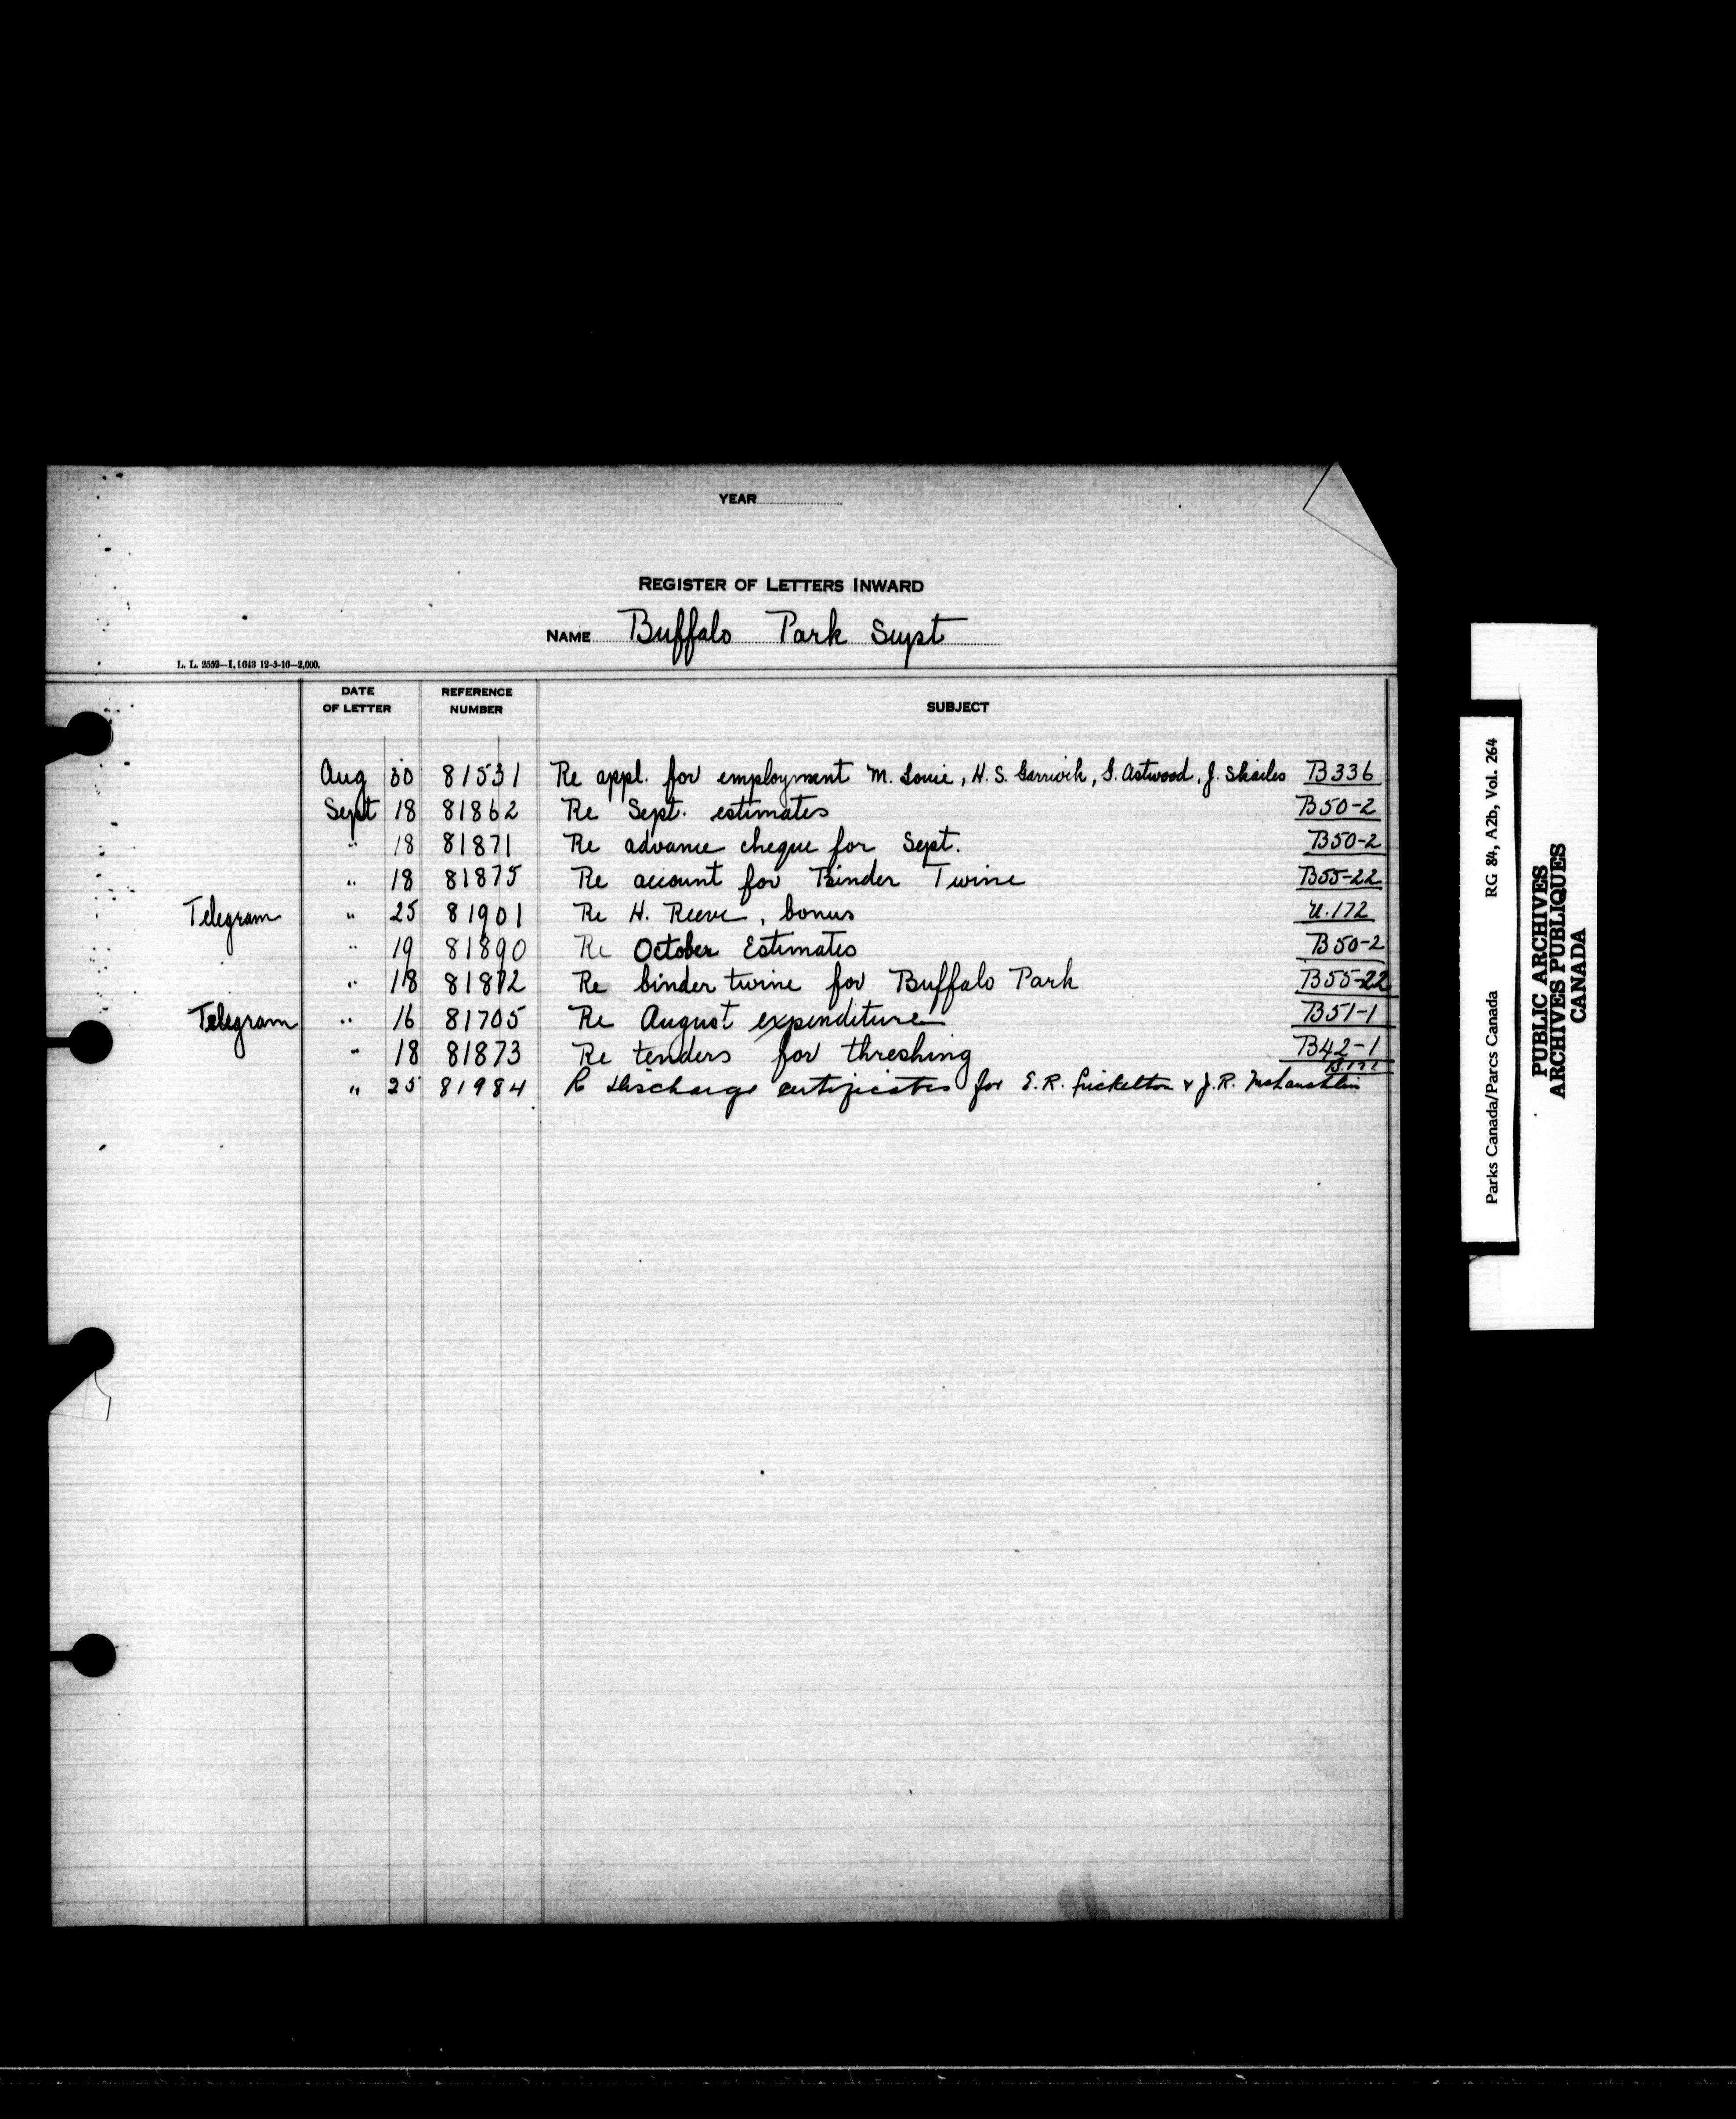 YEAR
REGISTER OF LETTERS INWARD
NAME Buffalo Park Supt
L. L. 2552—I, 1613 12-5-16—2,000.
DATE OF LETTER REFERENCE NUMBER SUBJECT
Aug 30 81531 Re appl. for employment M. Louie, H. S. Garrioch, G. Astwood, J. Skailes B336
Sept 18 81862 Re Sept. estimates B50-2
" 18 81871 Re advance cheque for Sept. B50-2
" 18 81875 Re account for Binder Twine B55-22
Telegram " 25 81901 Re H. Reeve, bonus U.172
" 19 81890 Re October Estimates B50-2
" 18 81872 Re binder twine for Buffalo Park B55-22
Telegram " 16 81705 Re August expenditure B51-1
" 18 81873 Re tenders for threshing B42-1
" 25 81984 Re Discharge certificates for E. R. & J. R. McLaughlin
Parks Canada/Parcs Canada RG 84, A2b, Vol. 264
PUBLIC ARCHIVES
ARCHIVES PUBLIQUES
CANADA